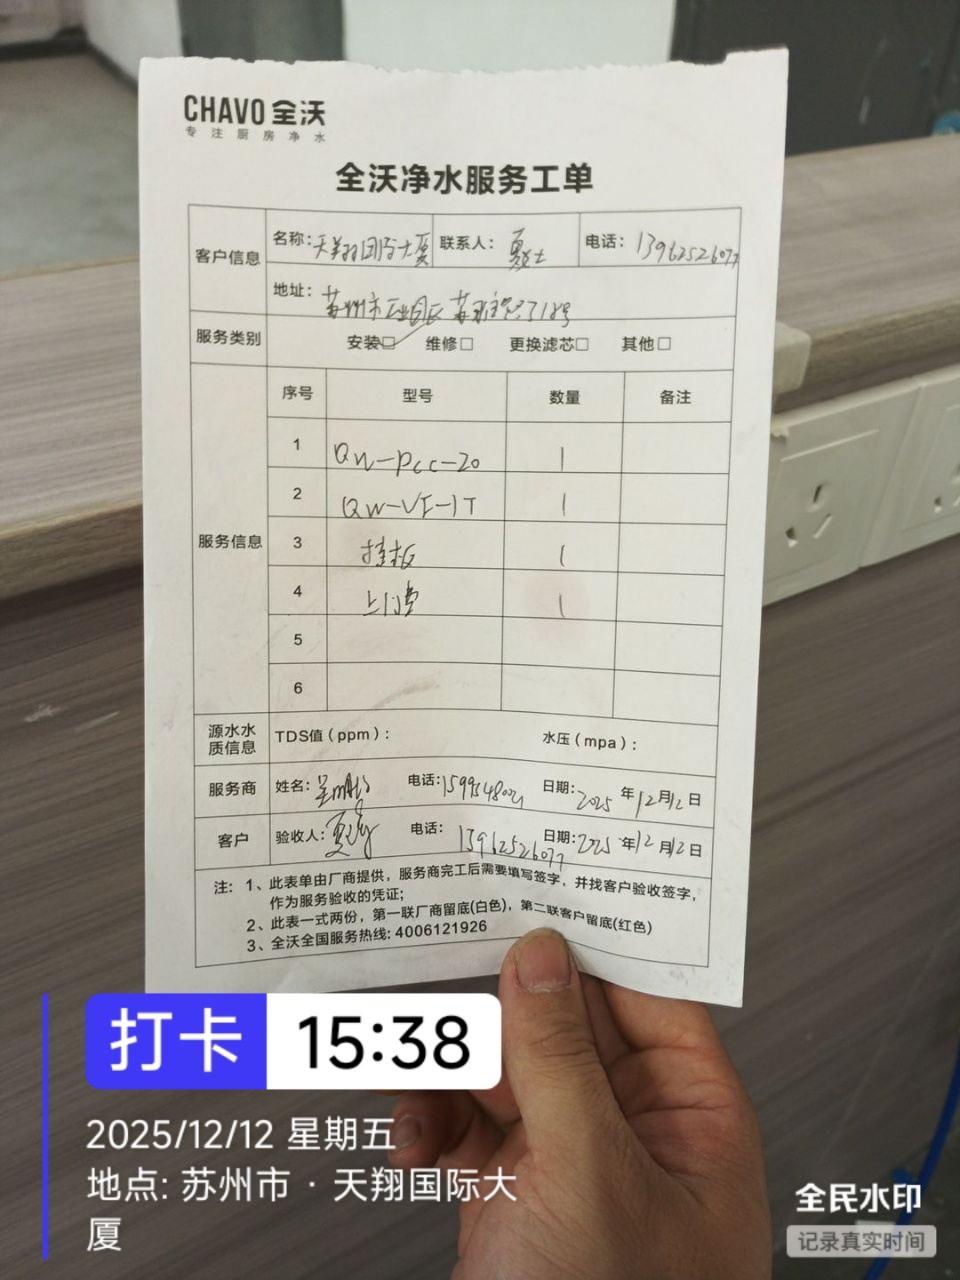 CHAVO 全沃
专注厨房净水
全沃净水服务工单
客户信息 名称：天翔国际大厦 联系人： 电话：13962526077
地址：苏州市工业园区 18号
服务类别 安装☑ 维修□ 更换滤芯□ 其他□
服务信息 序号 型号 数量 备注
1 QW-PCC-20 1
2 QW-VF-1T 1
3 挂板 1
4 上门费 1
5
6
源水水质信息 TDS值（ppm）： 水压（mpa）：
服务商 姓名： 电话: 日期: 2025 年 12 月 12 日
客户 验收人: 电话: 13962526077 日期: 2025 年 12 月 12 日
注：1、此表单由厂商提供，服务商完工后需要填写签字，并找客户验收签字，
作为服务验收的凭证；
2、此表一式两份，第一联厂商留底(白色)，第二联客户留底(红色)
3、全沃全国服务热线: 4006121926
打卡 15:38
2025/12/12 星期五
地点: 苏州市 · 天翔国际大
厦
全民水印
记录真实时间